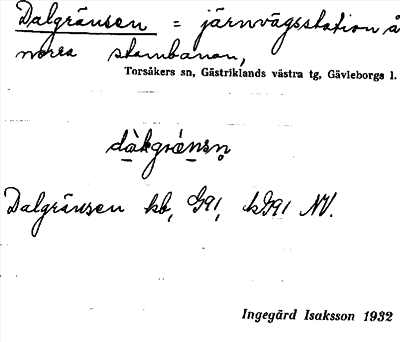 Dalgränsen = järnvägsstation å
norra stambanan,
Torsåkers sn, Gästriklands västra tg, Gävleborgs l.
Dalgränsen kb, G91, kG91 NV.
Ingegärd Isaksson 1932